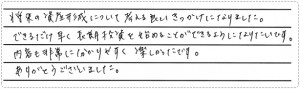 将来の資産形成について考える良いきっかけになりました。
できるだけ早く長期投資を始めることができるようになりたいです。
内容も非常に分かりやすく楽しかったです。
ありがとうございました。